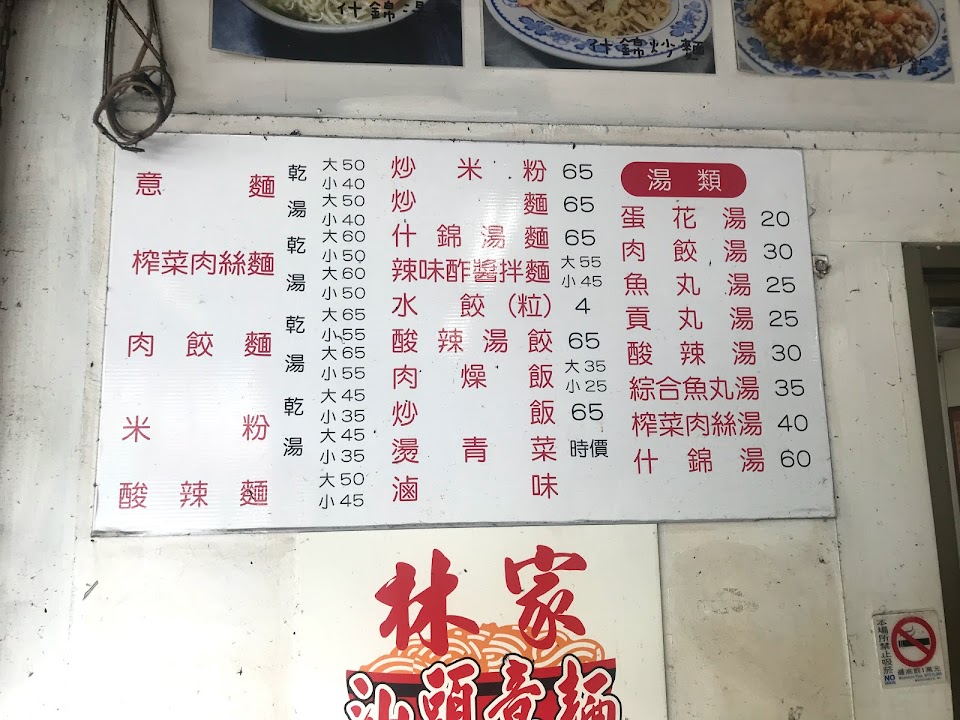 什錦湯
什錦炒麵
意麵 乾 大50 小40
湯 大50 小40
榨菜肉絲麵 乾 大60 小50
湯 大60 小50
肉餃麵 乾 大65 小55
湯 大65 小55
米粉 乾 大45 小35
湯 大45 小35
酸辣麵 大50 小45
炒米粉 65
炒麵 65
什錦湯麵 65
辣味酢醬拌麵 大55 小45
水餃(粒) 4
酸辣湯餃 65
肉燥飯 大35 小25
炒飯 65
燙青菜 時價
滷味
湯類
蛋花湯 20
肉餃湯 30
魚丸湯 25
貢丸湯 25
酸辣湯 30
綜合魚丸湯 35
榨菜肉絲湯 40
什錦湯 60
林家
汕頭意麵
本場所禁止吸菸
NO